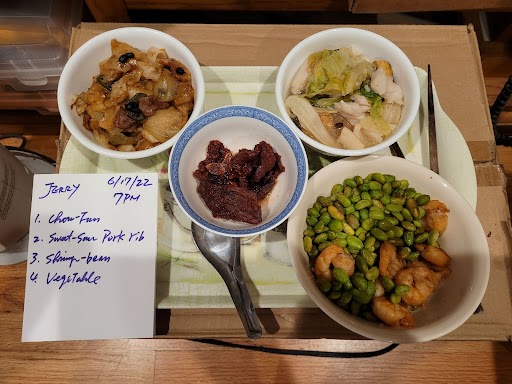 JERRY 6/17/22
7PM
1. Chow-Fun
2. Sweet-Sour Pork rib
3. Shrimp-bean
4. Vegetable